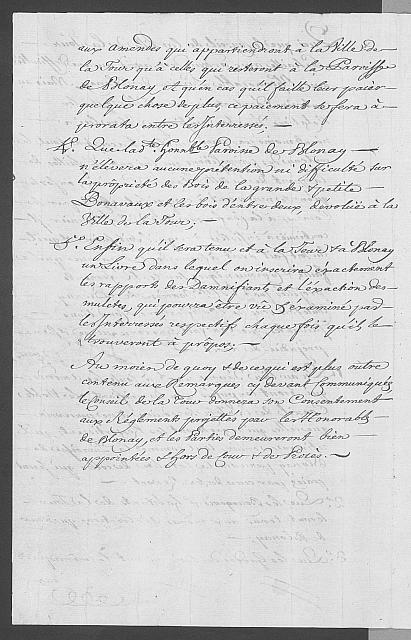 aux amendes qui appartiendront à la Ville de
la Tour qu'à celles qui resteront à la Paroisse
de Blonay, et qu'en cas qu'il faille leur païer
quelque chose de plus, ce paiement se fera à
prorata entre les Interressés. —
4°. Que lad.te Honn.ble Paroisse de Blonay —
n'élevera aucune prétention ni difficulté sur
la proprieté des Bois de la grande & petite —
Bonavaux et les bois d'entre deux, dévolüe à la
Ville de la Tour; —
5.° Enfin qu'il sera tenu et à la Tour & à Blonay
un Livre dans lequel on inscrira éxactement
les rapports des Damnifiants et l'éxaction des —
amendes, qui pourra être vû & éxaminé par
les Interressés respectifs chaque fois qu'ils le
trouveront à propos; —
Au moïen de quoy & de ce qui est plus outre
contenu aux Remarques cy devant communiquées
le Conseil de la Tour donnera son Consentement
aux Réglements projettés par les Honorables
de Blonay, et les Parties demeureront bien
appointées & hors de Cour & de Procès. —